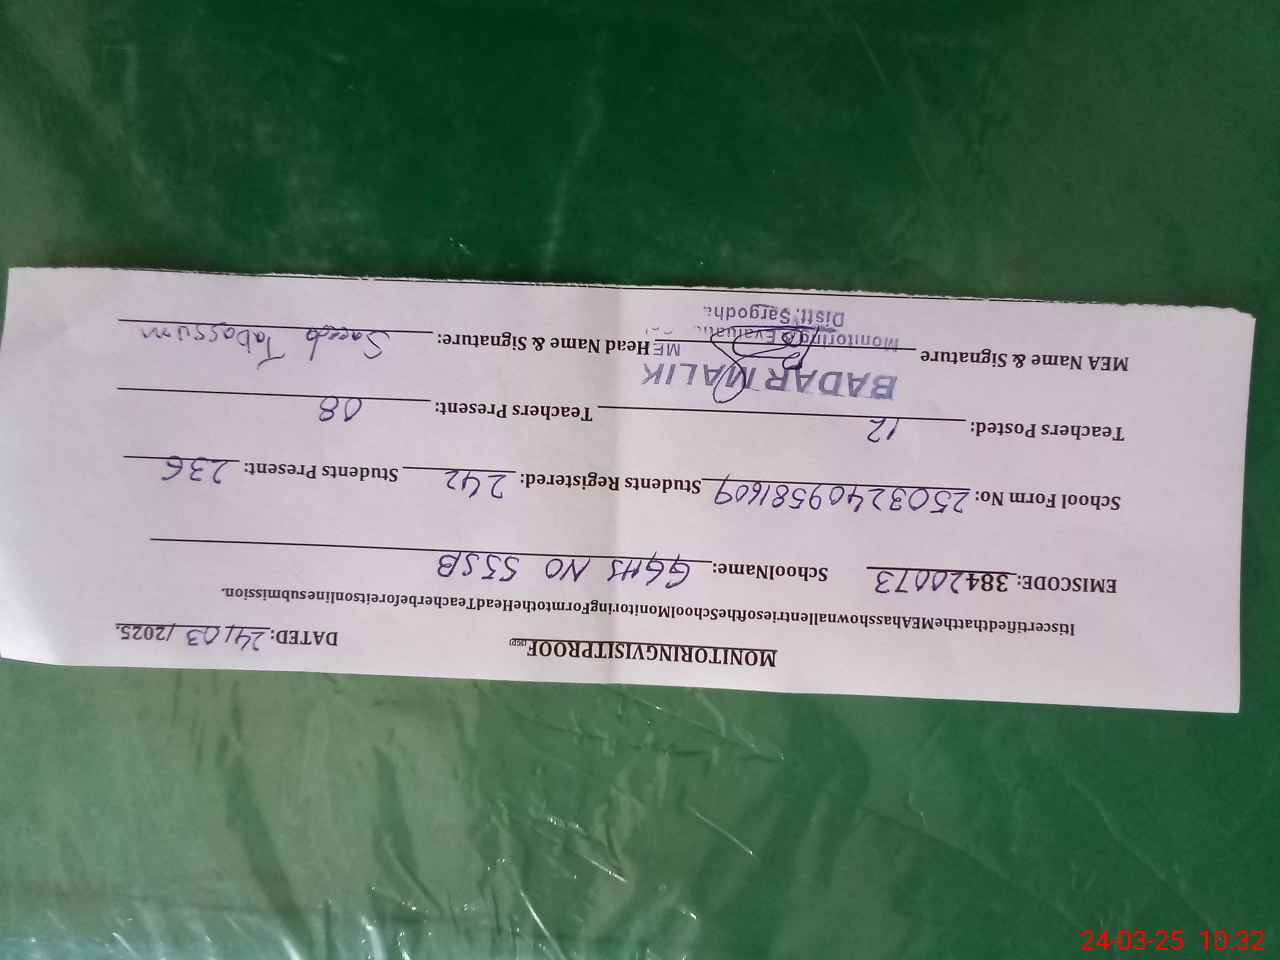 MONITORINGVISITPROOF
DATED: 24/03/2025.
ItiscertifiedthattheMEAhasshownallentriesoftheSchoolMonitoringFormtotheHeadTeacherbeforeitsonlinesubmission.
EMISCODE: 38420073 SchoolName: GGHS NO 55SB
School Form No: 25032409581609 Students Registered: 242 Students Present: 236
Teachers Posted: 12 Teachers Present: 08
BADAR MALIK
MEA Name & Signature ME Head Name & Signature: Saeeda Tabassum
Monitoring & Evaluati
Distt. Sargodha
24-03-25 10:32